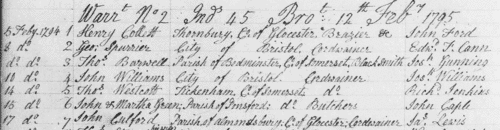 Warrt. No 2 Ind 45 Bro t. 12th Feby 1795
5 Feby. 1794 1 Henry Collett Thornbury, C. of Glocester Brazier & John Ford
8 do. 2 Geo: Spurrier City of Bristol Cordwainer Edwd. T. Cann
do do. 3 Thos. Barwell Parish of Bedminster, C. of Somerset, Black Smith Jos: Gunning
10 do. 4 John Williams City of Bristol Cordwainer Jos: Williams
14 do 5 Thos. Westcott Tickenham, C. of Somerset do Richd. Jenkins
15 do 6 John & Martha Green; Parish of do. Butchers John Caple
17 do. 7 John Culford Parish of Almondsbury, C. of Glocester; Cordwainer Jas. Lewis